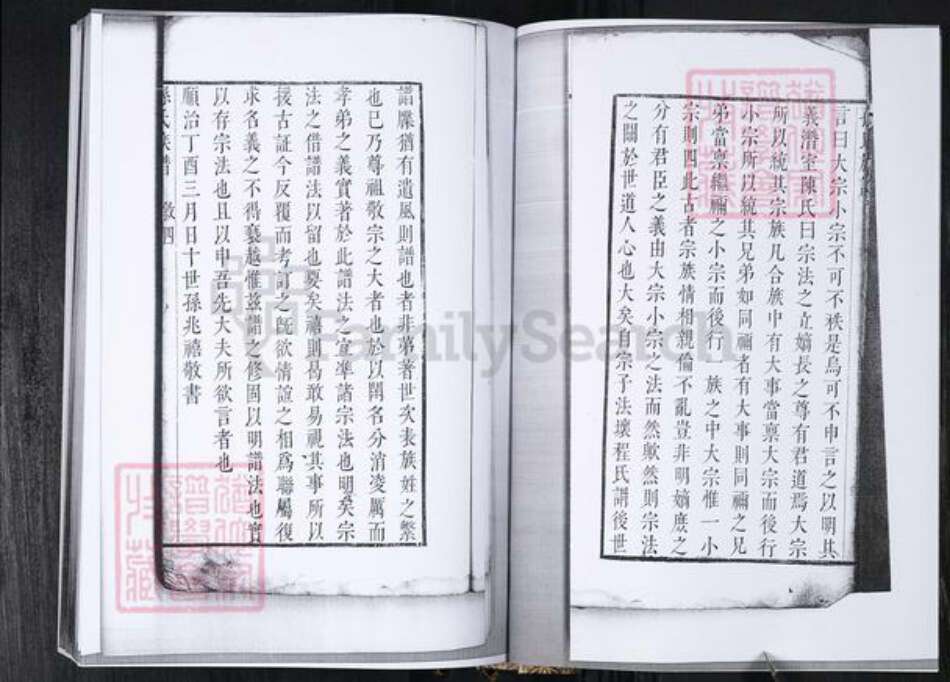 言曰大宗小宗不可不祑是烏可不申言之以明其
義潛室陳氏曰宗法之立嫡長之尊有君道焉大宗
所以統其宗族凡合族中有大事當禀大宗而後行
小宗所以統其兄弟如同禰者有大事則同禰之兄
弟當禀繼禰之小宗而後行一族之中大宗惟一小
宗則四此古者宗族情相親倫不亂豈非明嫡庶之
分有君臣之義由大宗小宗之法而然歟然則宗法
之關於世道人心也大矣自宗子法壞程氏謂後世
譜牒猶有遺風則譜也者非第著世次表族姓之繁
也已乃尊祖敬宗之大者也於以閑名分消凌厲而
孝弟之義實著於此譜法之宜凖諸宗法也明矣宗
法之借譜法以留也要矣禧則曷敢易視其事所以
援古証今反覆而考訂之既欲情誼之相爲聯屬復
求名義之不得褻越惟兹譜之修固以明譜法也實
以存宗法也且以申吾先大夫所欲言者也
順治丁酉三月日十世孫兆禧敬書
孫氏族譜 敘 四
FamilySearch